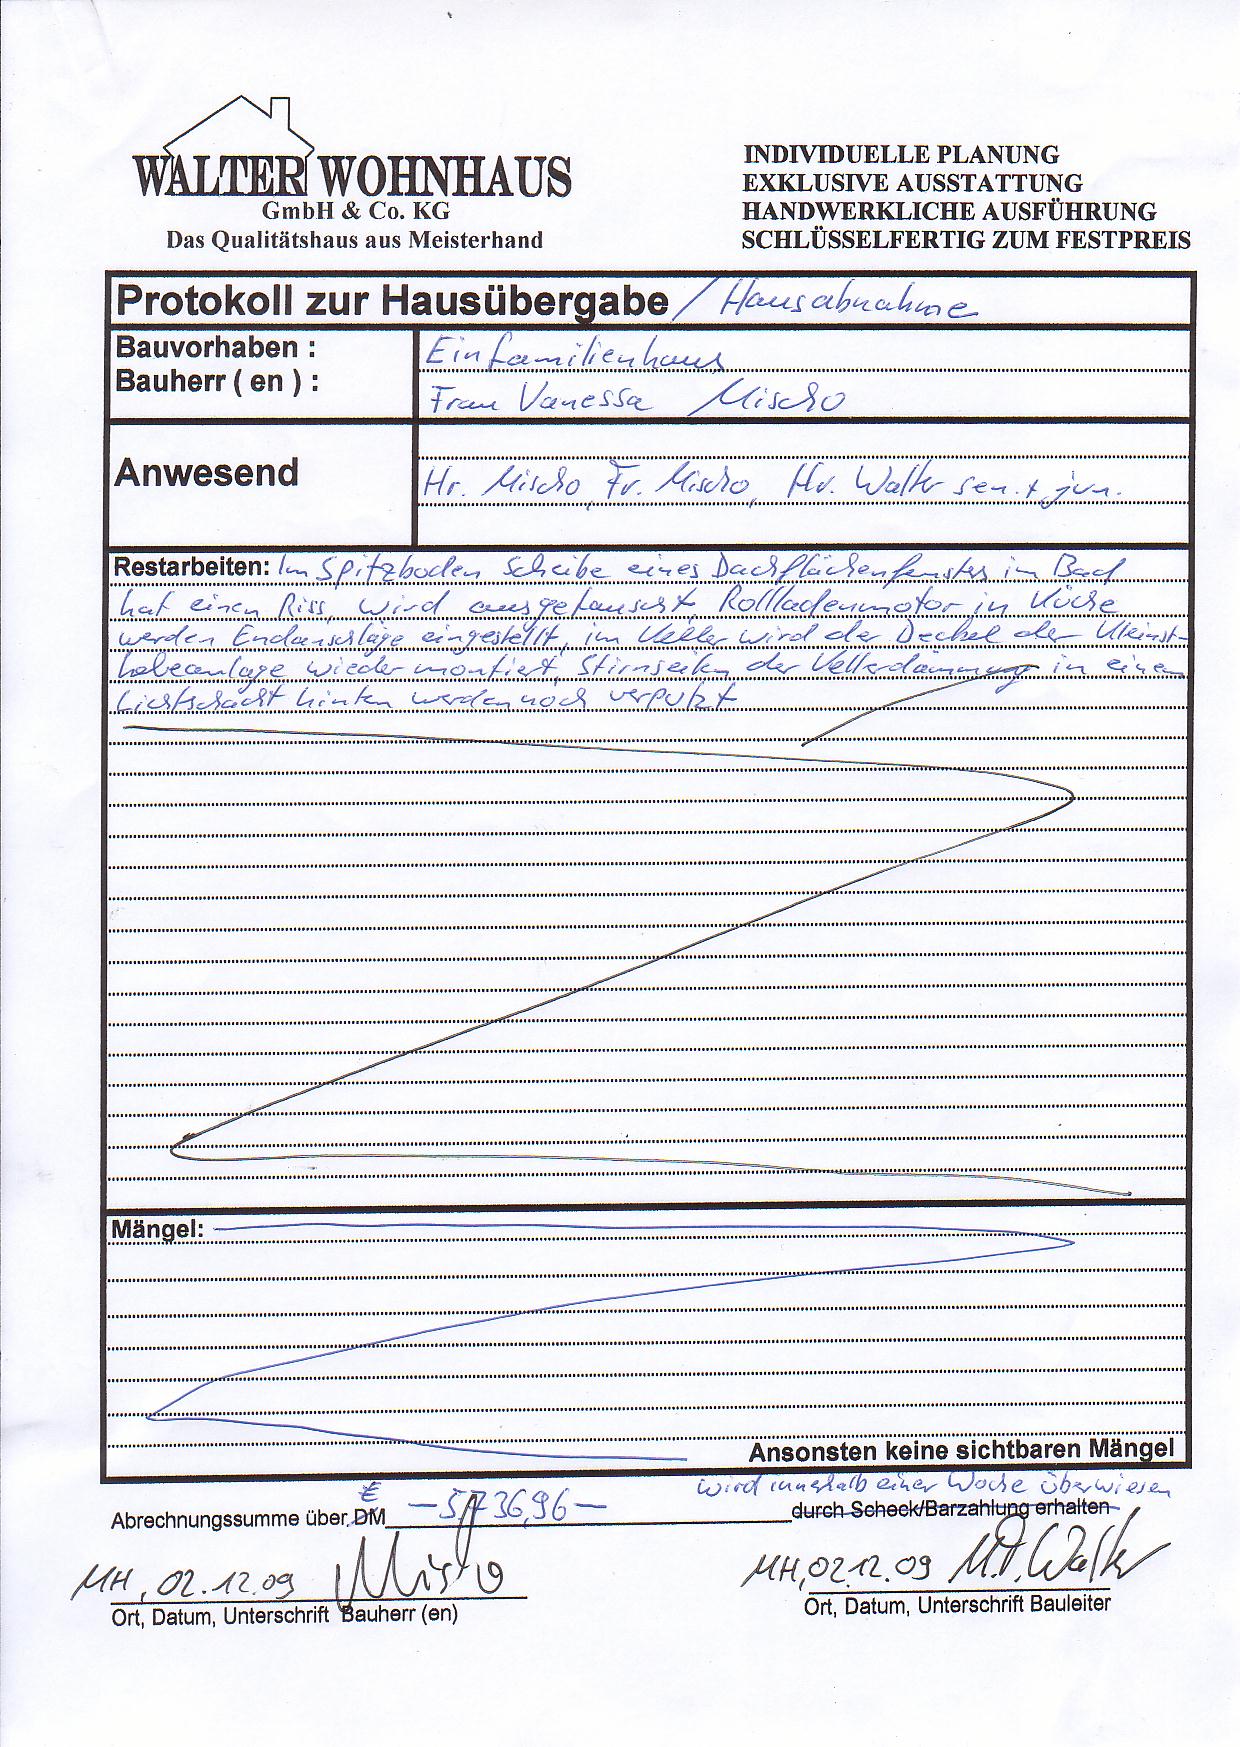 WALTER WOHNHAUS
GmbH & Co. KG
Das Qualitätshaus aus Meisterhand
INDIVIDUELLE PLANUNG
EXKLUSIVE AUSSTATTUNG
HANDWERKLICHE AUSFÜHRUNG
SCHLÜSSELFERTIG ZUM FESTPREIS
Protokoll zur Hausübergabe / Hausabnahme
Bauvorhaben : Einfamilienhaus
Bauherr ( en ) : Frau Vanessa Mischo
Anwesend
Hr. Mischo, Fr. Mischo, Hr. Walter sen. + jun.
Restarbeiten: Im Spitzboden Scheibe eines Dachflächenfensters im Bad
hat einen Riss, wird ausgetauscht Rollladenmotor in Küche
werden Endanschläge eingestellt, im Keller wird der Deckel der Kleinst-
hebeanlage wieder montiert, Stirnseiten der Kellerdämmung in einem
Lichtschacht hinten werden noch verputzt
Mängel:
Ansonsten keine sichtbaren Mängel
wird innerhalb einer Woche überwiesen
€
Abrechnungssumme über DM —5736,96— durch Scheck/Barzahlung erhalten
MH, 02.12.09 Mischo
Ort, Datum, Unterschrift Bauherr (en)
MH, 02.12.09 Walter
Ort, Datum, Unterschrift Bauleiter